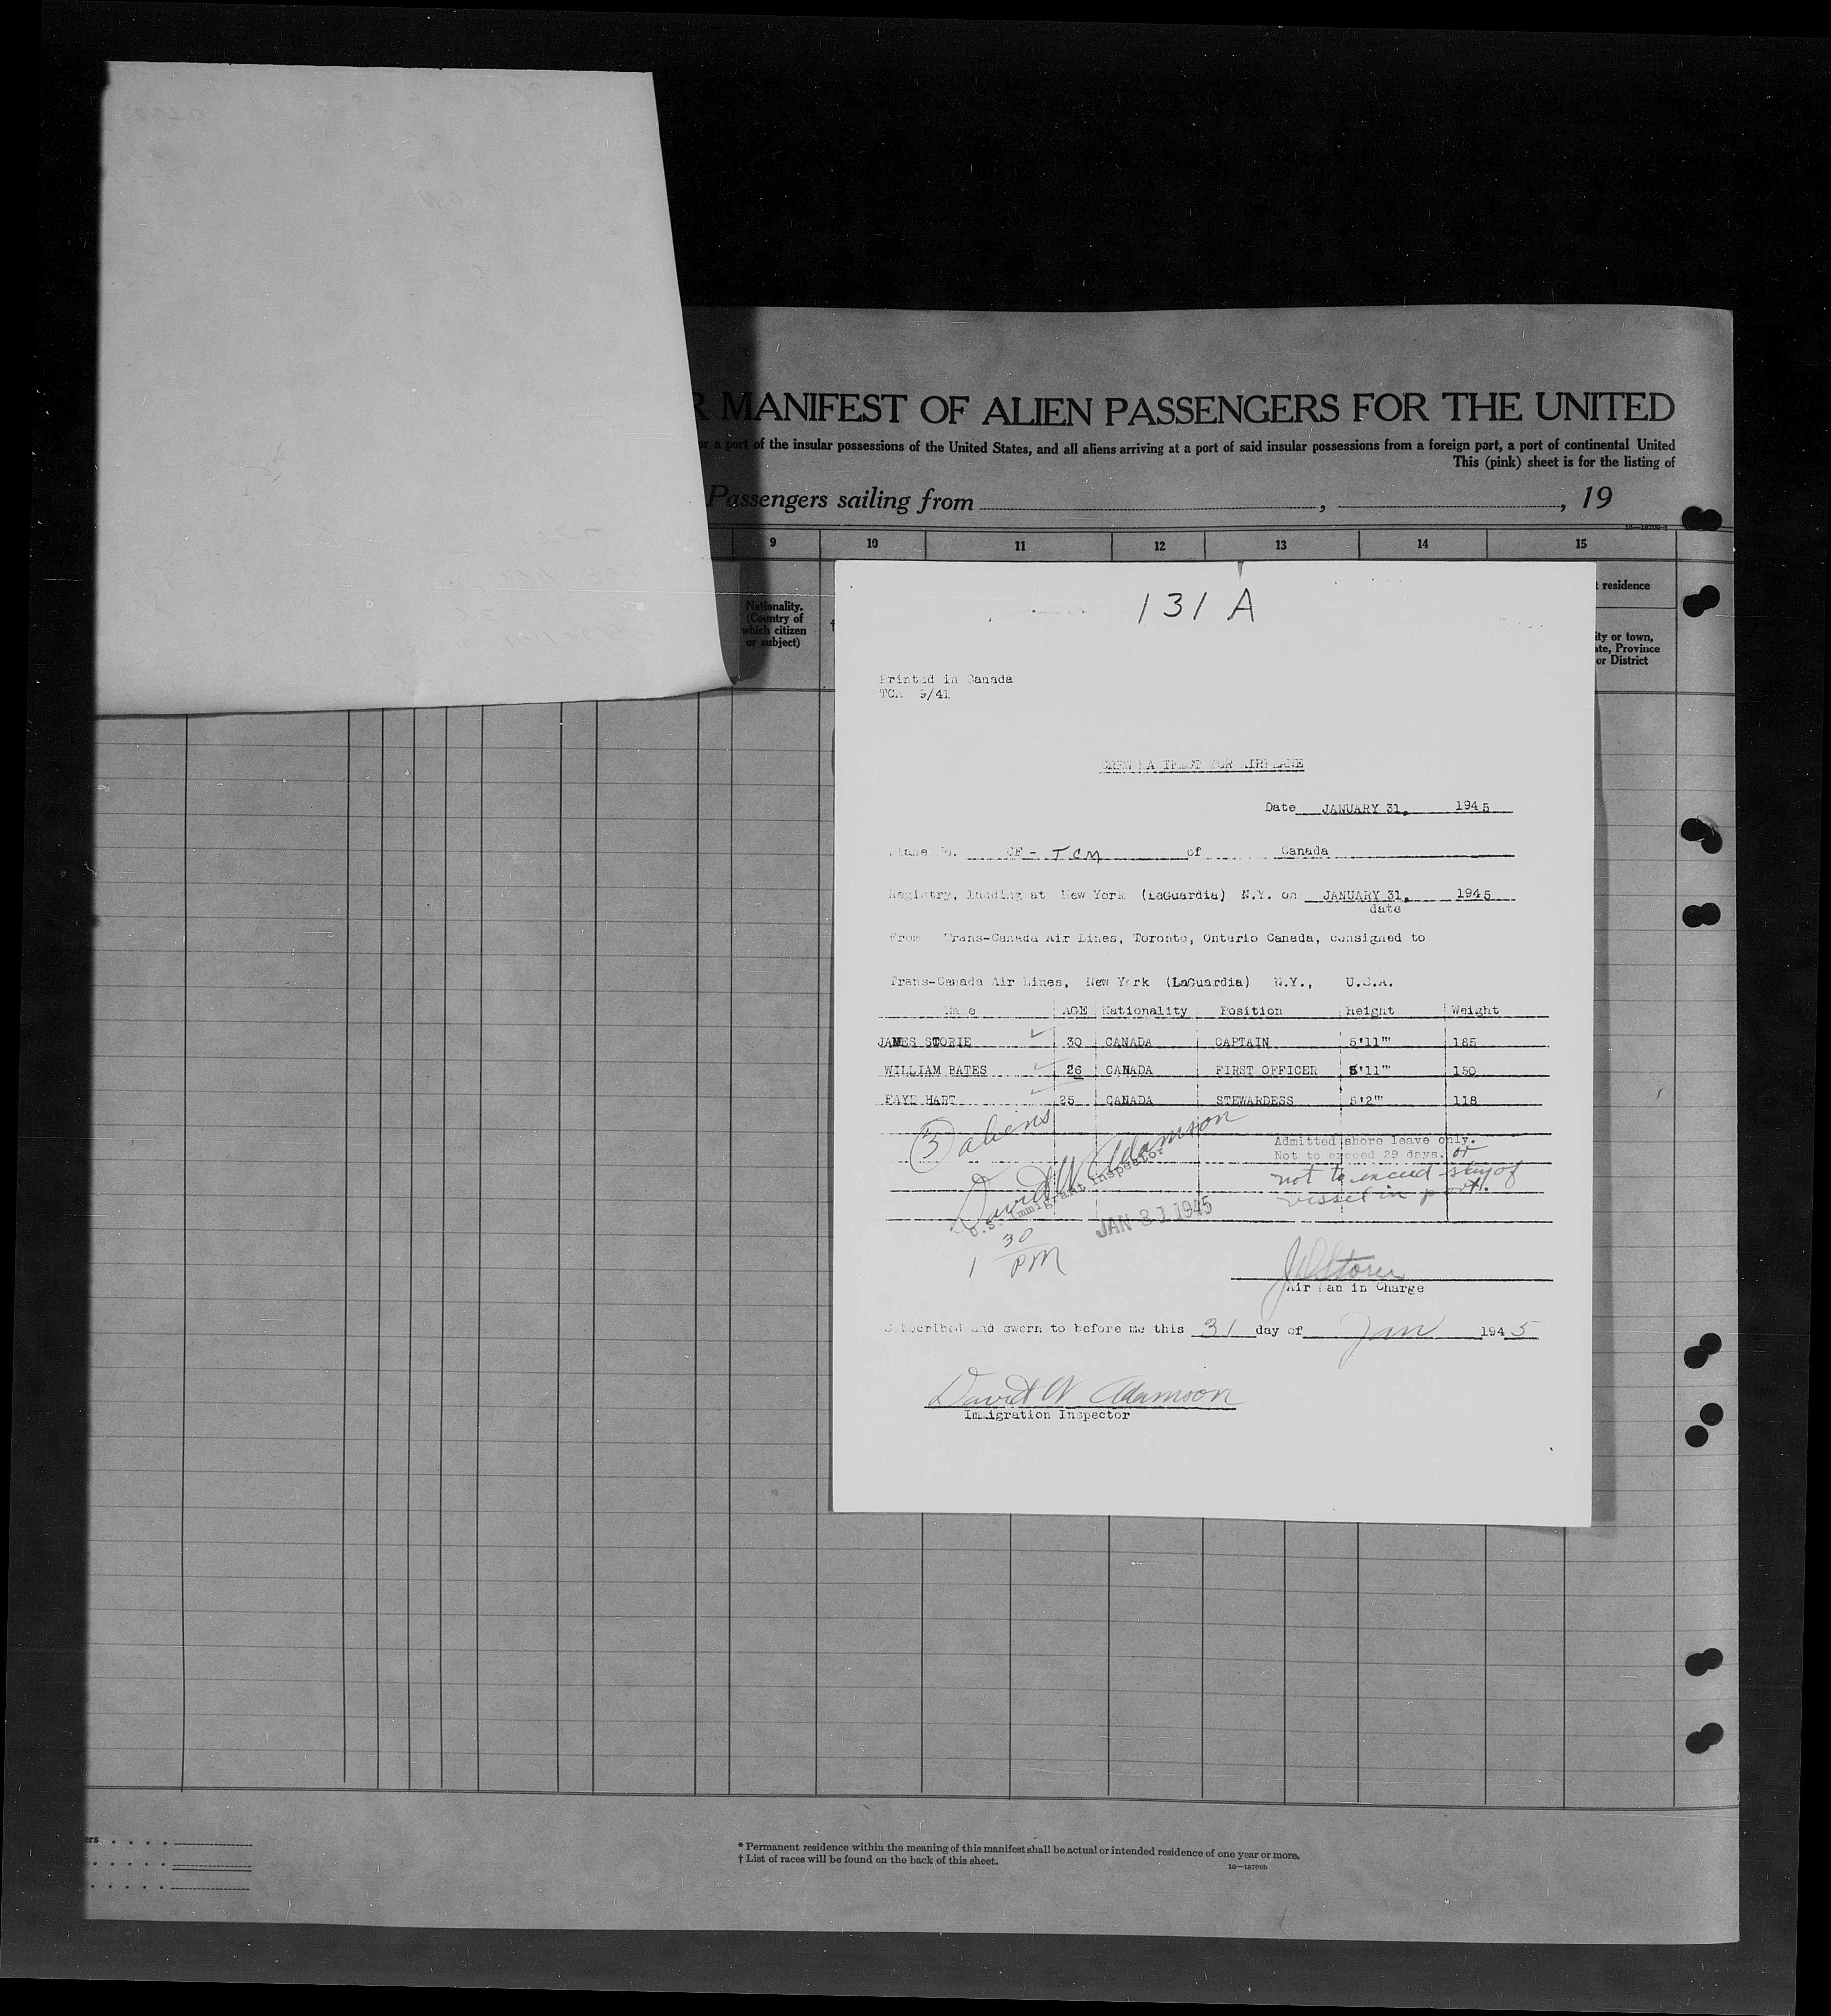 MANIFEST OF ALIEN PASSENGERS FOR THE UNITED
or a port of the insular possessions of the United States, and all aliens arriving at a port of said insular possessions from a foreign port, a port of continental United
This (pink) sheet is for the listing of
Passengers sailing from , , 19
9 10 11 12 13 14 15
Nationality.
(Country of
which citizen
or subject)
residence
ity or town,
ate, Province
or District
131 A
Printed in Canada
TCA 9/41
CREW MANIFEST FOR AIRPLANE
Date JANUARY 31, 1945
Plane No. CF - TCM of Canada
Registry, landing at New York (LaGuardia) N.Y. on JANUARY 31, 1945
date
From Trans-Canada Air Lines, Toronto, Ontario Canada, consigned to
Trans-Canada Air Lines, New York (LaGuardia) N.Y., U.S.A.
Name AGE Nationality Position Height Weight
JAMES STORIE 30 CANADA CAPTAIN 5'11"' 185
WILLIAM BATES 26 CANADA FIRST OFFICER 5'11"' 150
FAYE HART 25 CANADA STEWARDESS 5'2"' 118
3 aliens
David W Adamson
U.S. Immigrant Inspector
Admitted shore leave only.
Not to exceed 29 days. or
not to exceed stay of
vessel in port.
JAN 31 1945
1 30 PM
Storie
Air Man in Charge
Subscribed and sworn to before me this 31 day of Jan 1945
David W Adamson
Immigration Inspector
ers
* Permanent residence within the meaning of this manifest shall be actual or intended residence of one year or more.
† List of races will be found on the back of this sheet.